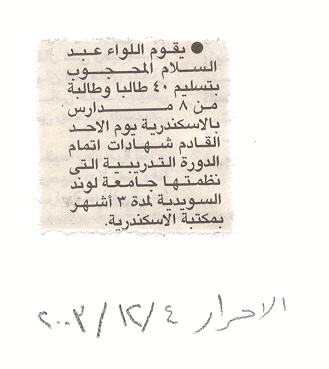 ● يقوم اللواء عبد
السلام المحجوب
بتسليم ٤٠ طالبا وطالبة
من ٨ مدارس
بالاسكندرية يوم الاحد
القادم شهادات اتمام
الدورة التدريبية التى
نظمتها جامعة لوند
السويدية لمدة ٣ أشهر
بمكتبة الاسكندرية.
الاحرار ٤/١٢/٢٠٠٣